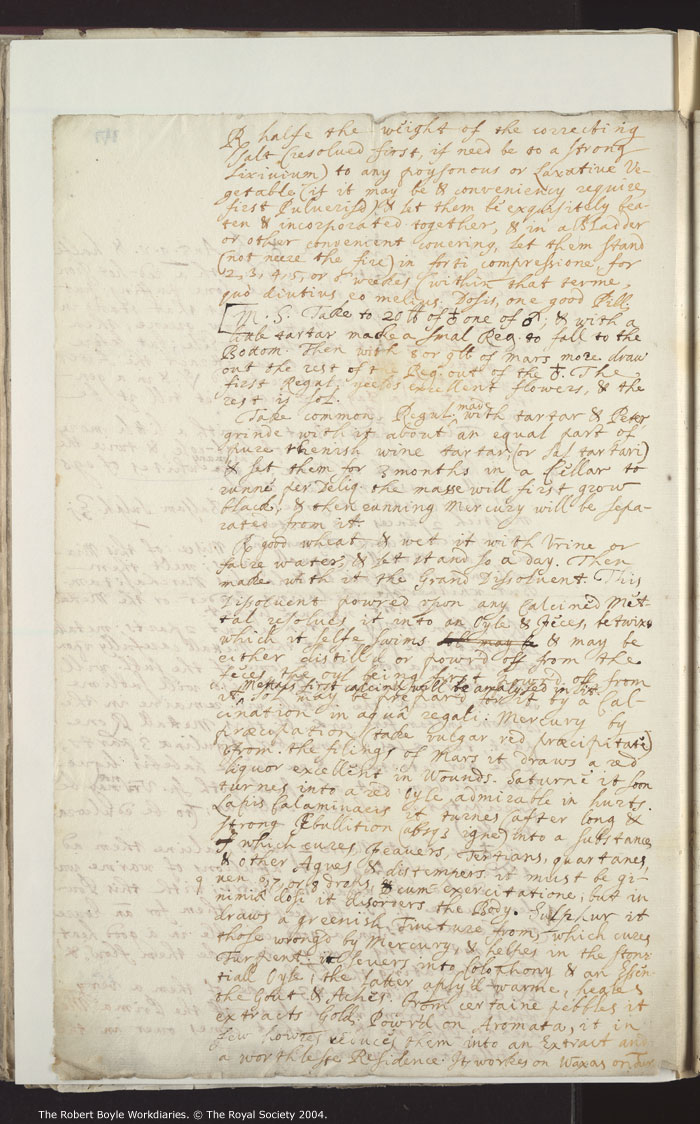 ℞ halfe the weight of the correcting
Salt (resolved first, if need be to a strong
Lixivium) to any poysonous or Laxative Ve-
getable (if it may be & conveniency require
first Pulveris'd) & let them be exquisitely bea-
ten & incorporated together, & in a Bladder
or other convenient covering, let them stand
(not neere the fire) in forti compressione, for
2, 3, 4, 5, or 6 weekes (within that terme,
quo diutius eo melius. Dosis, one good Pill.
M. S. Take to 20 lb of ♁ one of ♂, & with a
little tartar make a smal Reg. to fall to the
Bottom. Then with 8 or 9 lb of mars more draw
out the rest of the Reg. out of the ♁. The
first Regul. yeelds excellent flowers, & the
rest is Sol.
Take common Regul. mart. with tartar & Peter
grinde with it about an equal part of
pure rhenish wine tartar (or Sal tartari)
& let them for 3 months in a Cellar to
runne per Deliq. the masse will first grow
black, & then running Mercury will be sepa-
rated from it.
℞ good wheat & wet it with Urine or
faire water, & let stand so a day. Then
make with it the Grand Dissolvent. This
Dissolvent powred upon any Calcined Met-
tal resolves it into an Oyle & feces, betwixt
which it selfe swims & may be
either distill'd or powr'd off from the
feces, the oyl being first powr'd off from
it. Mettals first calcin'd will be analysed in it.
may be prepar'd by a Cal-
cination in aqua regali: Mercury by
præcipitation (take vulgar red præcipitate)
From the filings of Mars it draws a red
liquor excellent in Wounds. Saturne it soon
turnes into a red Oyle admirable in hurts.
Lapis Calaminaris it turnes after long &
strong Ebullition (absq igne) into a substance
which cures Feavers, Tertians, quartanes
& other Agues & distempers it must be gi-
nen 6, 7, or 8 drops, & cum exercitatione; but in
nimiâ dosi it disorders the Body. Sulphur it
draws a greenish Tincture from, which cures
those wrong'd by Mercury, & helpes in the stone
Turpent. it severs into Colophony & an Essen-
tiall Oyle; the latter apply'd warme, heales
the Gout & Aches. From certaine pebbles it
extracts Gold. Powr'd on Aromata, it in
few howres reduces them into an Extract and
a worthlesse Residence. It workes on Waxas or
The Robert Boyle Workdiaries. © The Royal Society 2004.